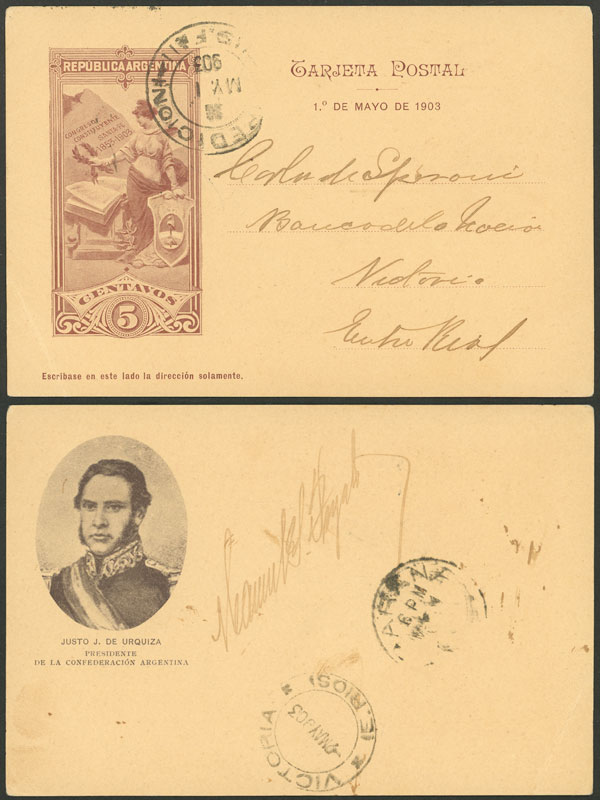 REPÚBLICA ARGENTINA
CONGRESO
CONSTITUYENTE
SANTA FE
1853-1903
CENTAVOS
5
903
MY 1
TARJETA POSTAL
1.º DE MAYO DE 1903
Carlos de Speroni
Banco de la Nación
Victoria
Entre Rios
Escríbase en este lado la dirección solamente.
JUSTO J. DE URQUIZA
PRESIDENTE
DE LA CONFEDERACIÓN ARGENTINA
6 PM
VICTORIA
(E. RIOS)
MAY 903